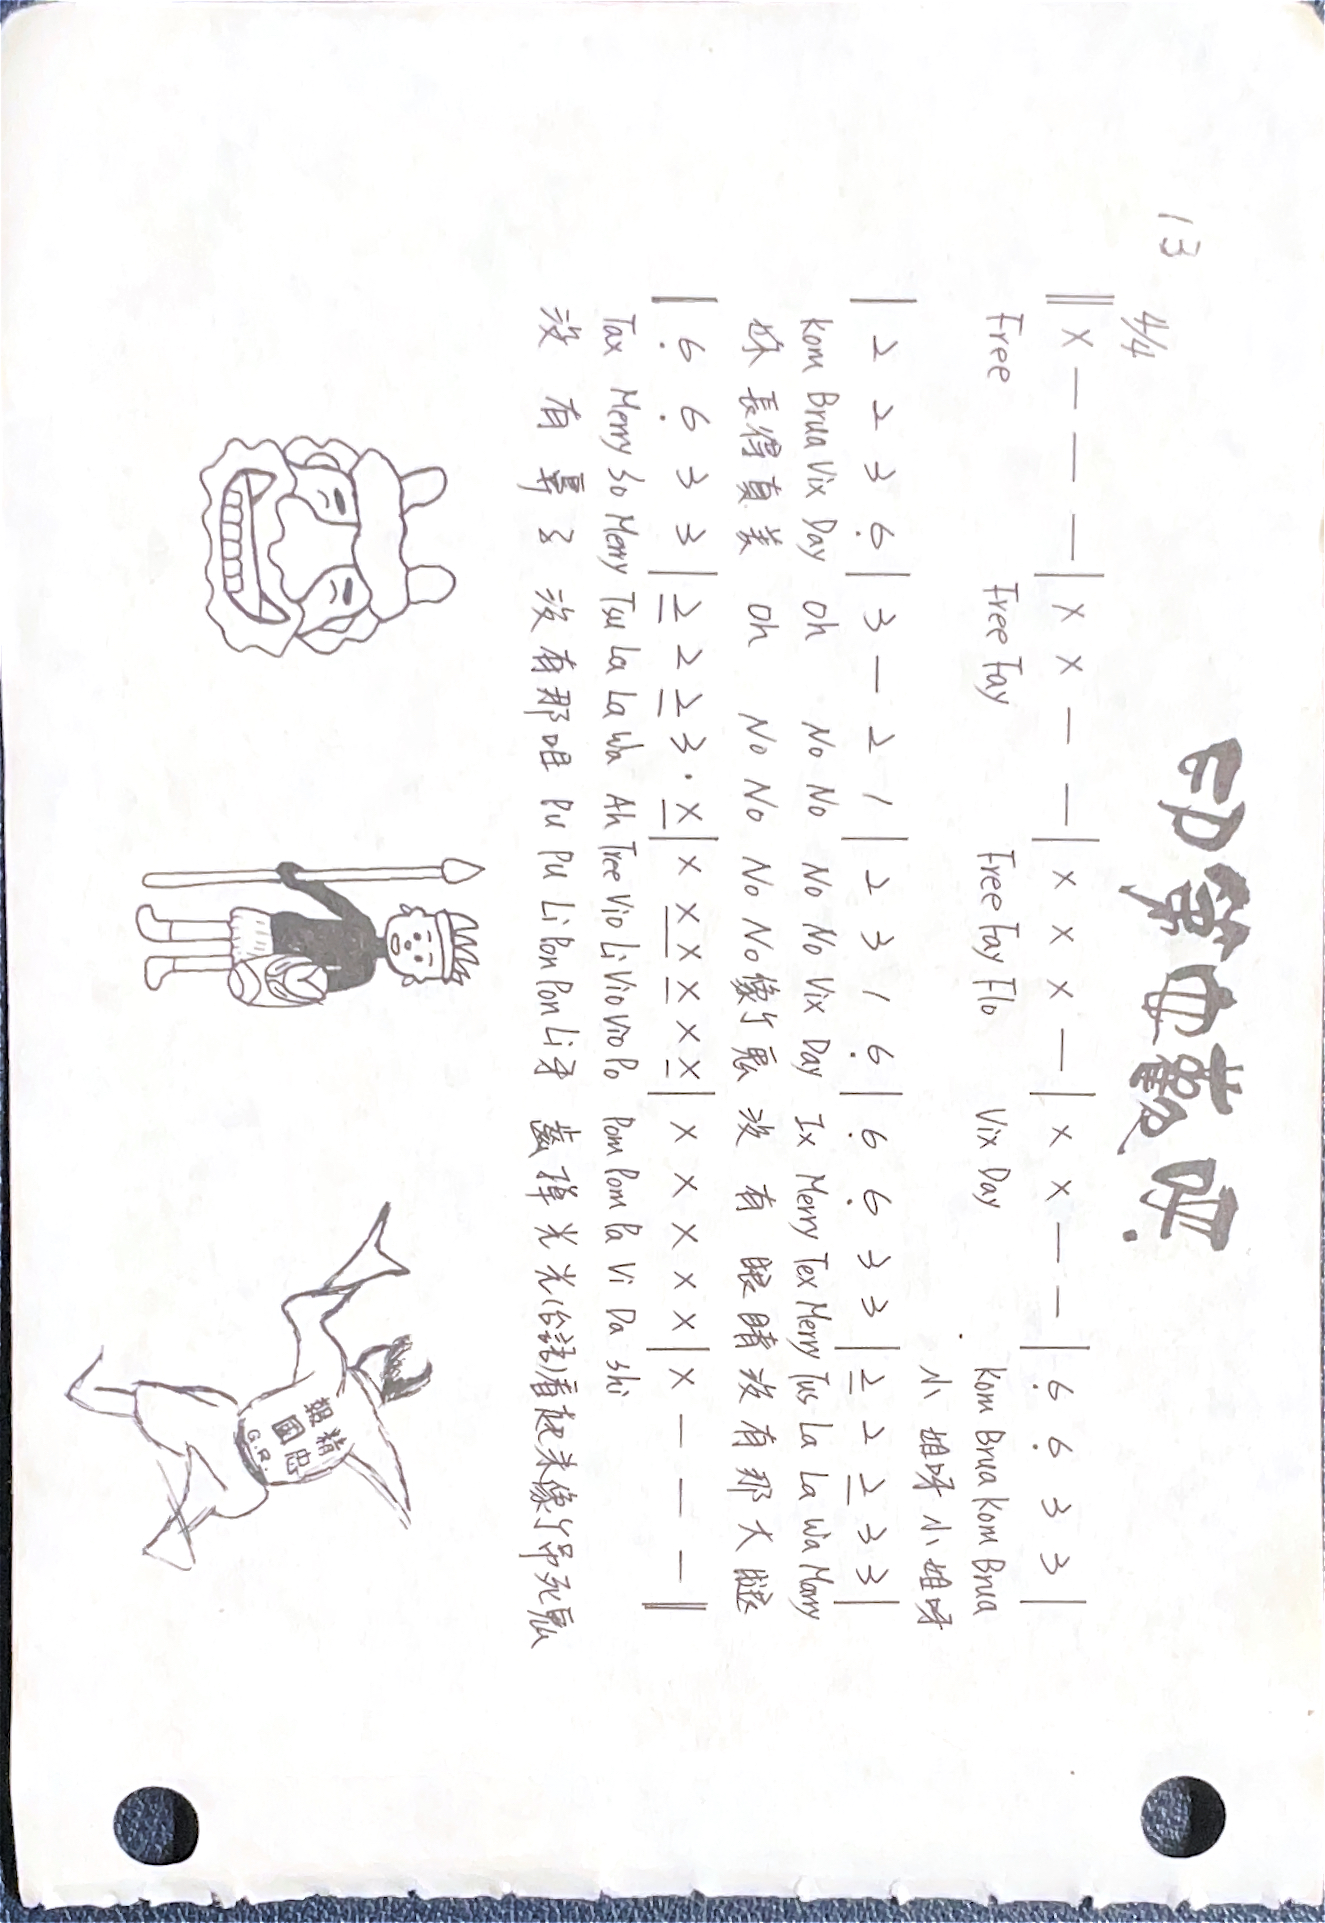 印第安歡呼.
13
4/4
‖ X — — — | X X — — | X X X — | X X — — | 6̣ 6̣ 3 3 |
Free Free Fay Free Fay Flo Vix Day Kom Brua Kom Brua
小 姐呀 小 姐呀
| 2 2 3 6̣ | 3 — 2 1 | 2 3 1 6̣ | 6̣ 6̣ 3 3 | 2̲ 2 2̲ 3 3 |
Kom Brua Vix Day Oh No No No No Vix Day Ix Merry Tex Merry Tus La La Wa Marry
妳 長得真美 Oh No No No No像个鬼 沒 有 眼睛沒有那大腿
| 6̣ 6̣ 3 3 | 2̲ 2 2̲ 3 · X̲ | X X̲ X̲ X̲ X X̲ | X X X X X | X — — — ‖
Tax Merry So Merry Tsu La La Wa Ah Tree Vio Li Vio Vio Po Pom Pom Pa Vi Da shi
沒 有 鼻子 沒有那咀 Pu Pu Li Pon Pon Li牙 齒掉光光(台語)看起來像个吊死鬼
精忠
報國
G.R.